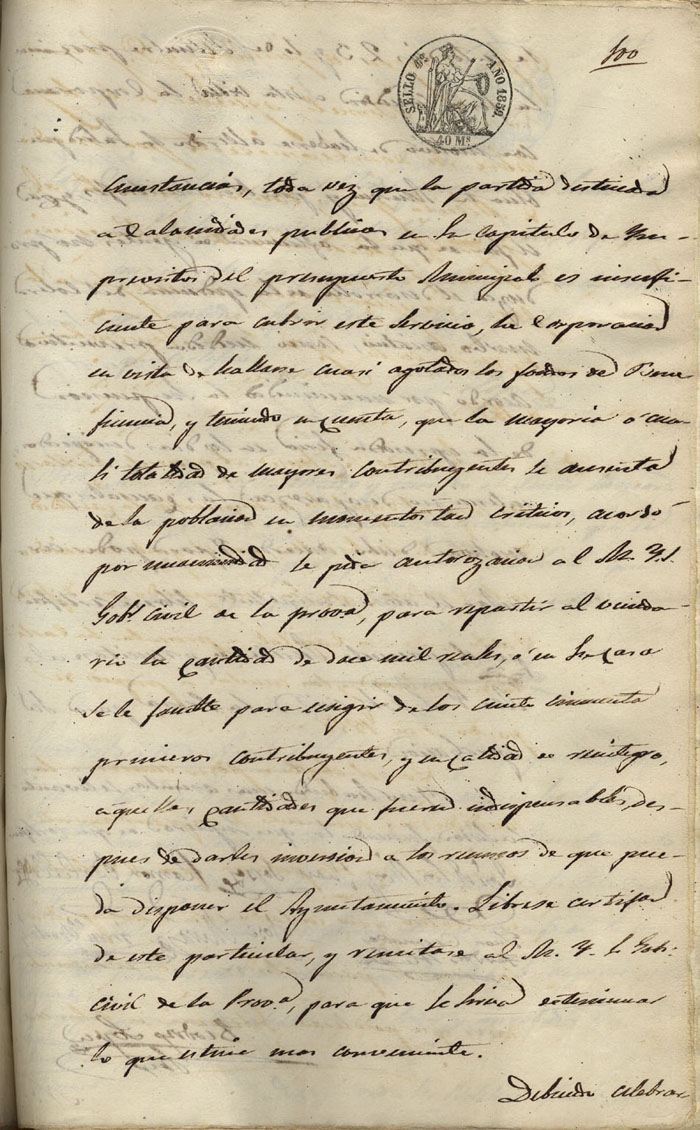 100
SELLO 4º AÑO 1859.
40 Ms.
cunstancias, toda vez que la partida destinada
a Calamidades publicas en el capitulo de Ym-
previstos del presupuesto Municipal es insufi-
ciente para cubrir este servicio, la Corporacion
en vista de hallarse cuasi agotados los fondos de Bene
ficencia, y teniendo en cuenta, que la mayoria ó cua-
si totalidad de mayores contribuyentes se ausenta
de la poblacion en momentos tan criticos, acordó
por unanimidad se pida autorizacion al M. Y. S.
Gobr. Civil de la prova, para repartir al vecinda-
rio la cantidad de doce mil reales, ó en su caso
se le faculte para exigir de los ciento cincuenta
primeros contribuyentes, y en calidad de reintegro,
aquellas cantidades que fueran indispensables, des-
pues de darles inversion a los recursos de que pue-
da disponer el Ayuntamiento. Librese certifon
de este particular, y remitase al M. Y. S. Gobr.
Civil de la Prova, para que se sirva
lo que estime mas conveniente.
Debiendo celebrar